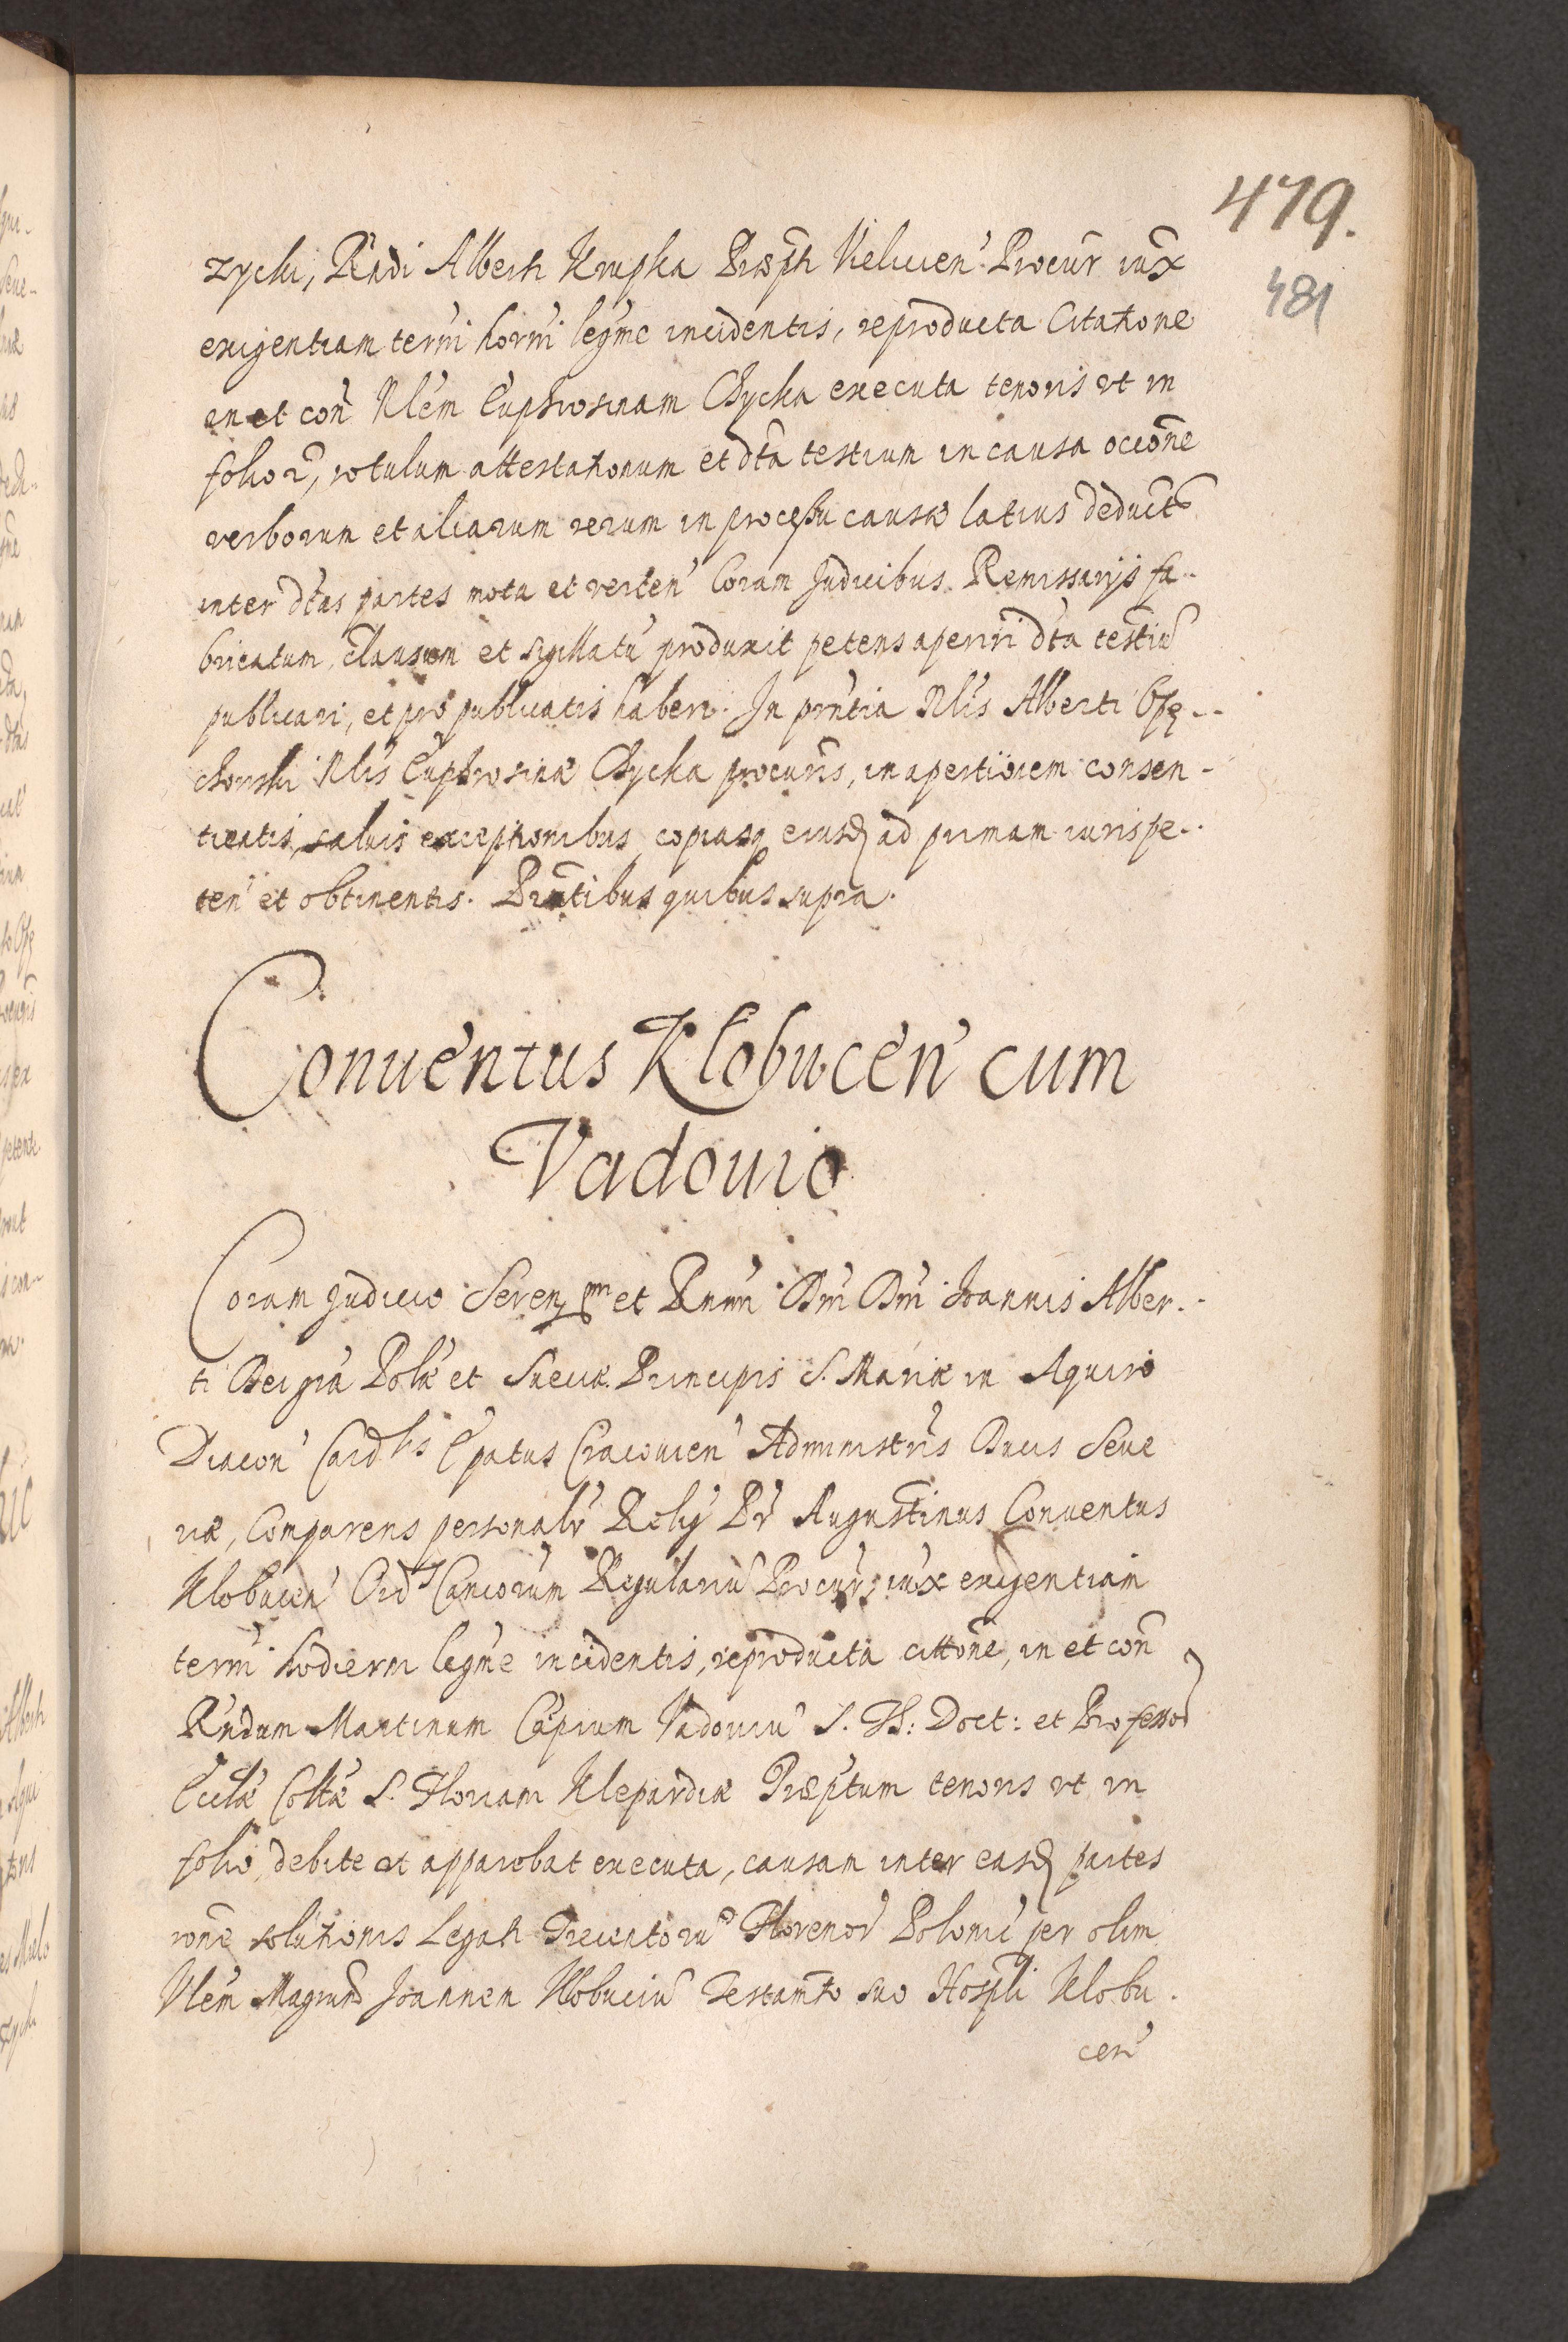 479.
481
zycki, Rndi Alberti Krupka Præpti Kielcien' Procur iux
exigentiam termi horni legme incidentis, reproducta Citatione
in et con Nlem Euphrosinam Chycka executa tenoris ut in
folio 2, rotulum attestationum et dta testium in causa occone
verborum et aliarum rerum in processu causæ latius deduct
inter dtas partes mota et verten' Coram Judicibus Remissarijs fa-
bricatum, clausum et sigillatu produxit petens aperiri dta testiu
publicari, et pro publicatis haberi. In pntia Nlis Alberti
chowski Nlis Euphrosinæ Chycka procuris, in apertiorem consen-
tientis, salvis exceptionibus copiasq eiusd ad primam iuris pe-
ten' et obtinentis. Pntibus quibus supra.
Conuentus Klobucen' cum
Vadouio
Coram Judicio Seren et Rnmi Dni Dni Joannis Alber-
ti Dei gra Polæ et Sueciæ Principis S. Mariæ in Aquiro
Diacon' Cardlis Epatus Cracouien' Administris Ducis Seue
riæ, Comparens personalr Relig Pr Augustinus Conuentus
Klobucen' Ord Canicorum Regulariu Procur, iux exigentiam
termi hodierni legme incidentis, reproducta cittone, in et con
Rndum Martinum Vadouiu S. Th: Doct: et Professor
Ecclæ Colltæ S. Floriani Klepardiæ Præptum tenoris ut in
folio, debite ut apparebat executa, causam inter easd partes
rone solutionis Legati Trecentoru Florenor Polonic per olim
Nlem Magrum Joannem Klobuciu Testamto suo Hospli Klobu-
cen'